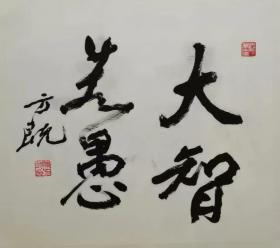 大智
若愚
方兢